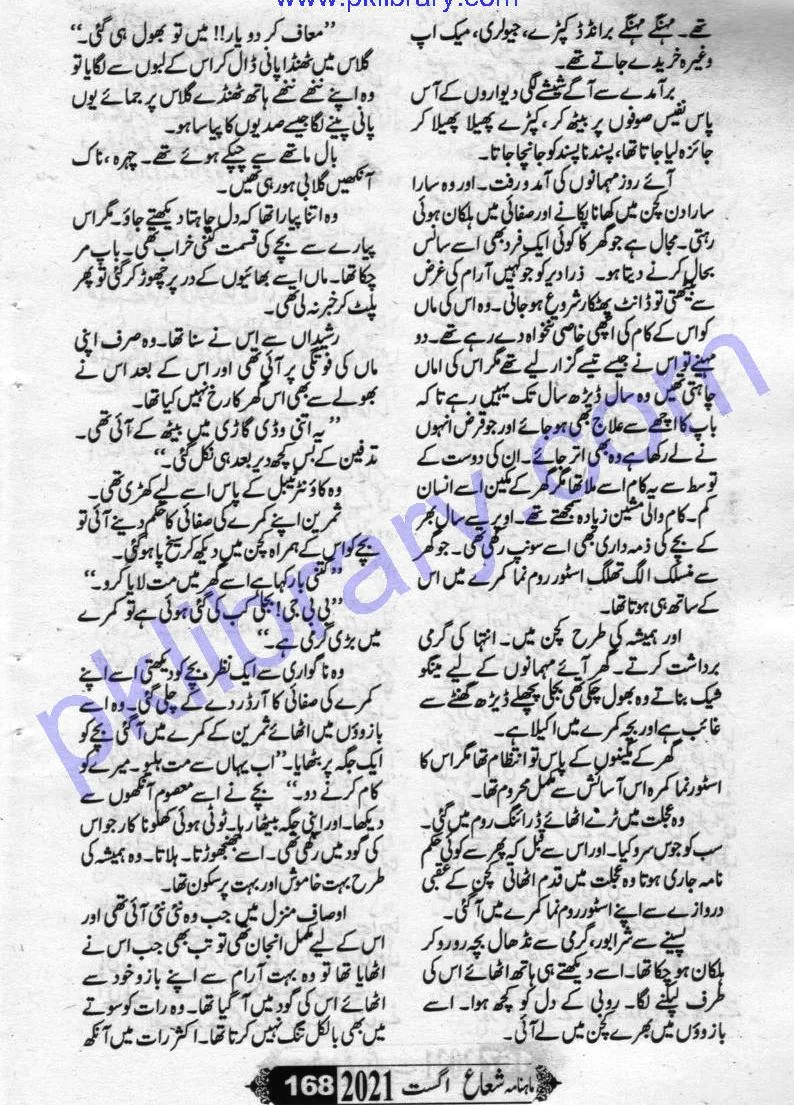 www.pklibrary.com
تھے۔ مہنگے مہنگے برانڈڈ کپڑے، جیولری، میک اپ
وغیرہ خریدے جاتے تھے۔
برآمدے سے آگے شیشے لگی دیواروں کے آس
پاس نفیس صوفوں پر بیٹھ کر، کپڑے پھیلا پھیلا کر
جائزہ لیا جاتا تھا، پسند ناپسند کو جانچا جاتا۔
آئے روز مہمانوں کی آمد و رفت۔ اور وہ سارا
سارا دن کچن میں کھانا پکانے اور صفائی میں ہلکان ہوئی
رہتی۔ مجال ہے جو گھر کا کوئی ایک فرد بھی اسے سانس
بحال کرنے دیتا ہو۔ ذرا دیر کو جو کہیں آرام کی غرض
سے بیٹھتی تو ڈانٹ پھٹکار شروع ہو جاتی۔ وہ اس کی ماں
کو اس کے کام کی اچھی خاصی تنخواہ دے رہے تھے۔ دو
مہینے تو اس نے جیسے تیسے گزار لیے تھے مگر اس کی اماں
چاہتی تھیں وہ سال ڈیڑھ سال تک یہیں رہے تا کہ
باپ کا اچھے سے علاج بھی ہو جائے اور جو قرض انہوں
نے لے رکھا ہے وہ بھی اتر جائے۔ ان کی دوست کے
توسط سے یہ کام اسے ملا تھا مگر گھر کے مکین اسے انسان
کم۔ کام والی مشین زیادہ سمجھتے تھے۔ اوپر سے سال بھر
کے بچے کی ذمہ داری بھی اسے سونپ رکھی تھی۔ جو گھر
سے منسلک الگ تھلگ اسٹور روم نما کمرے میں اس
کے ساتھ ہی ہوتا تھا۔
اور ہمیشہ کی طرح کچن میں۔ انتہا کی گرمی
برداشت کرتے۔ گھر آئے مہمانوں کے لیے مینگو
شیک بناتے وہ بھول چکی تھی بجلی پچھلے ڈیڑھ گھنٹے سے
غائب ہے اور بچہ کمرے میں اکیلا ہے۔
گھر کے مکینوں کے پاس تو انتظام تھا مگر اس کا
اسٹور نما کمرہ اس آسائش سے مکمل محروم تھا۔
وہ عجلت میں ٹرے اٹھائے ڈرائنگ روم میں گئی۔
سب کو جوس سرو کیا۔ اور اس سے قبل کہ پھر سے کوئی حکم
نامہ جاری ہوتا وہ عجلت میں قدم اٹھاتی کچن کے عقبی
دروازے سے اپنے اسٹور روم نما کمرے میں آ گئی۔
پسینے سے شرابور، گرمی سے نڈھال بچہ رو رو کر
ہلکان ہو چکا تھا۔ اسے دیکھتے ہی ہاتھ اٹھائے اس کی
طرف لپکنے لگا۔ روبی کے دل کو کچھ ہوا۔ اسے
بازوؤں میں بھرے کچن میں لے آئی۔
”معاف کر دو یار!! میں تو بھول ہی گئی۔“
گلاس میں ٹھنڈا پانی ڈال کر اس کے لبوں سے لگایا تو
وہ اپنے ننھے ننھے ہاتھ ٹھنڈے گلاس پر جمائے یوں
پانی پینے لگا جیسے صدیوں کا پیاسا ہو۔
بال ماتھے سے چپکے ہوئے تھے۔ چہرہ، ناک
آنکھیں گلابی ہو رہی تھیں۔
وہ اتنا پیارا تھا کہ دل چاہتا دیکھتے جاؤ۔ مگر اس
پیارے سے بچے کی قسمت کتنی خراب تھی۔ باپ مر
چکا تھا۔ ماں اسے بھائیوں کے در پر چھوڑ کر گئی تو پھر
پلٹ کر خبر نہ لی تھی۔
رشیداں سے اس نے سنا تھا۔ وہ صرف اپنی
ماں کی فوتگی پر آئی تھی اور اس کے بعد اس نے
بھولے سے بھی اس گھر کا رخ نہیں کیا تھا۔
”یہ اتنی وڈی گاڑی میں بیٹھ کے آئی تھی۔
تدفین کے بس کچھ دیر بعد ہی نکل گئی۔“
وہ کاؤنٹر ٹیبل کے پاس اسے لیے کھڑی تھی۔
ثمرین اپنے کمرے کی صفائی کا حکم دینے آئی تو
بچے کو اس کے ہمراہ کچن میں دیکھ کر سیخ پا ہو گئی۔
”کتنی بار کہا ہے اسے گھر میں مت لایا کرو۔“
”بی بی جی! بجلی کب کی گئی ہوئی ہے تو کمرے
میں بڑی گرمی ہے۔“
وہ ناگواری سے ایک نظر بچے کو دیکھتی اسے اپنے
کمرے کی صفائی کا آرڈر دے کے چلی گئی۔ وہ اسے
بازوؤں میں اٹھائے ثمرین کے کمرے میں آ گئی بچے کو
ایک جگہ پر بٹھایا۔ ”اب یہاں سے مت ہلیو۔ میرے کو
کام کرنے دو۔“ بچے نے اسے معصوم آنکھوں سے
دیکھا۔ اور اپنی جگہ بیٹھا رہا۔ ٹوٹی ہوئی کھلونا کار جو اس
کی گود میں رکھی تھی۔ اسے جھنجھوڑتا۔ ہلاتا۔ وہ ہمیشہ کی
طرح بہت خاموش اور بہت پرسکون تھا۔
اوصاف منزل میں جب وہ نئی نئی آئی تھی اور
اس کے لیے مکمل انجان تھی تو تب بھی جب اس نے
اٹھایا تھا تو وہ بہت آرام سے اپنے بازو خود سے
اٹھائے اس کی گود میں آ گیا تھا۔ وہ رات کو سوتے
میں بھی بالکل تنگ نہیں کرتا تھا۔ اکثر رات میں آنکھ
pklibrary.com
ماہنامہ شعاع اگست 2021 168